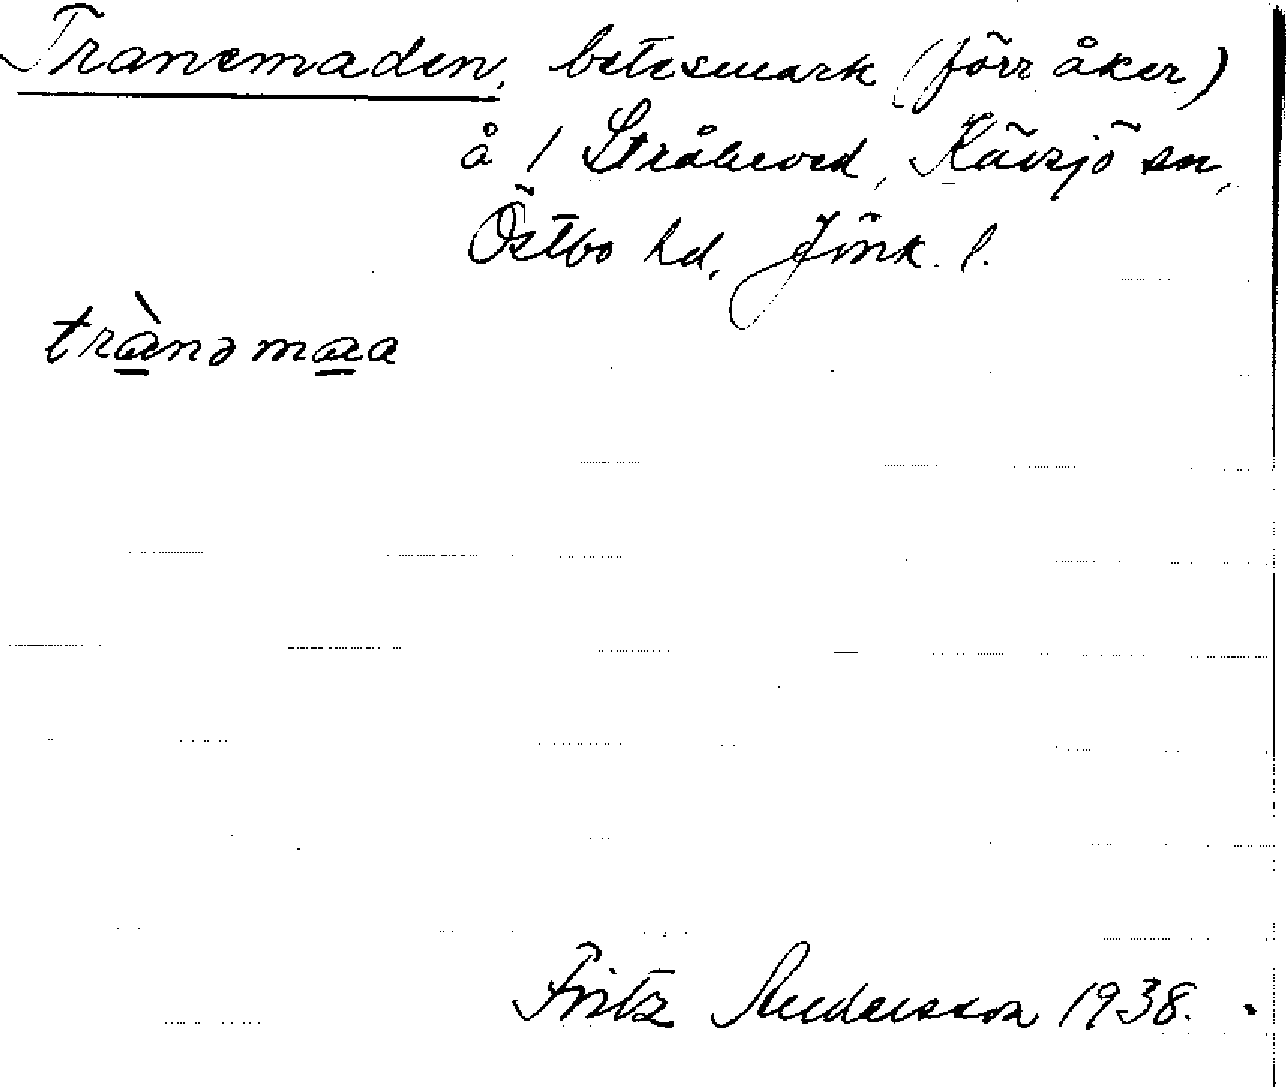 Tranemaden, betesmark (förr åker)
å 1 Stråkeved, Kävsjö sn,
Östbo hd, Jönk. l.
trànəmaa
Fritz Andersson 1938.